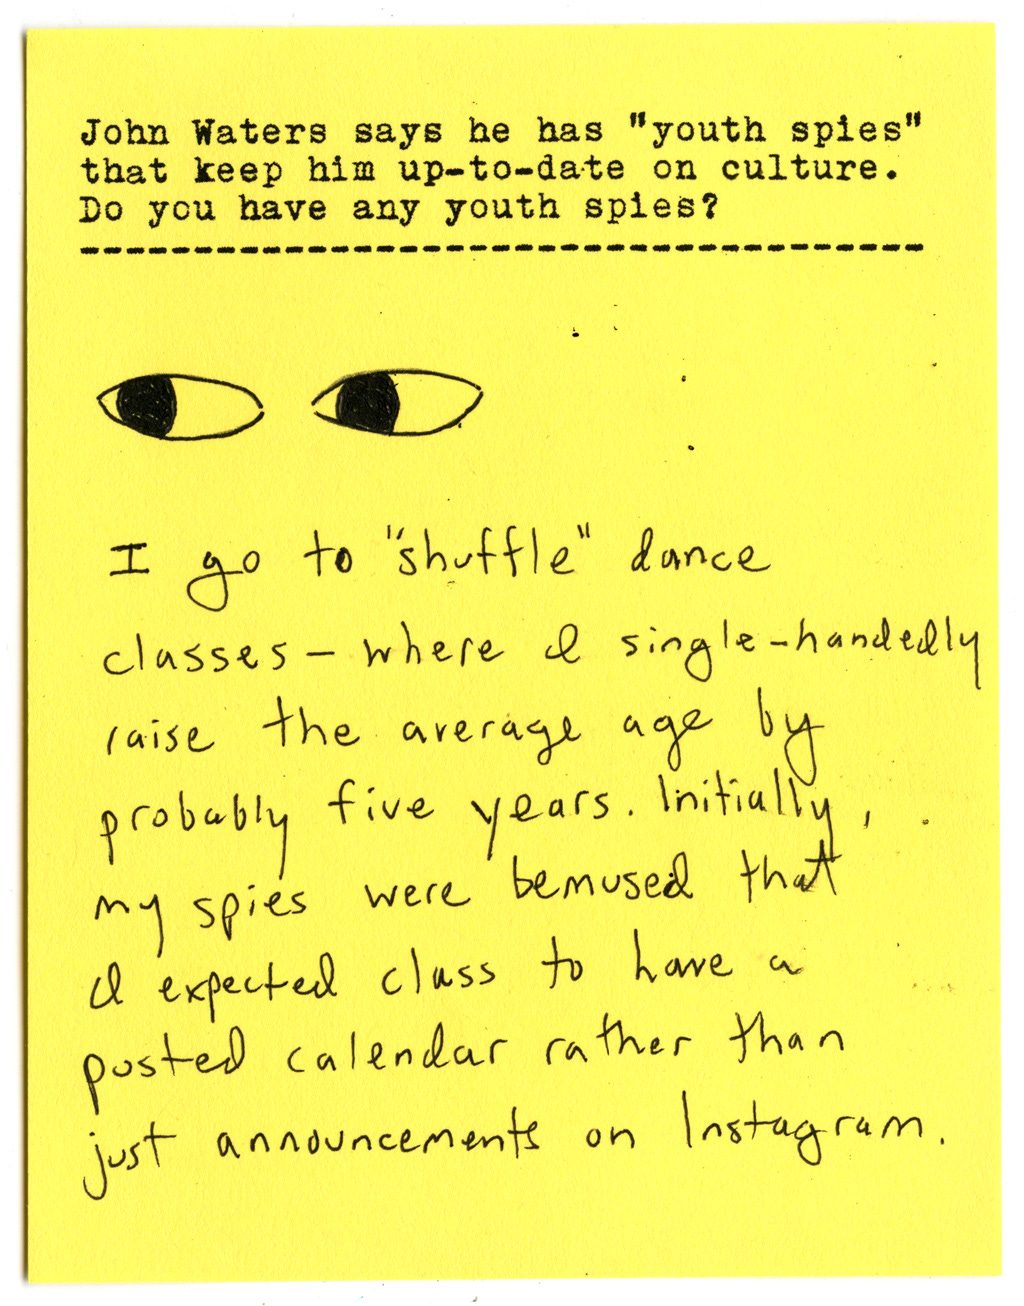 John Waters says he has "youth spies"
that keep him up-to-date on culture.
Do you have any youth spies?
-------------------------------------
I go to "shuffle" dance
classes – where I single-handedly
raise the average age by
probably five years. Initially,
my spies were bemused that
I expected class to have a
posted calendar rather than
just announcements on Instagram.